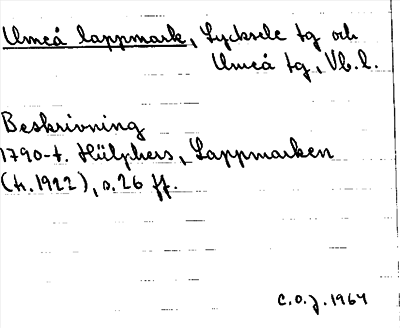 Umeå lappmark, Lycksele tg och
Umeå tg, Vb. l.
Beskrivning
1790-t. Hülphers, Lappmarken
(tr. 1922), s. 26 ff.
C.O.J. 1964